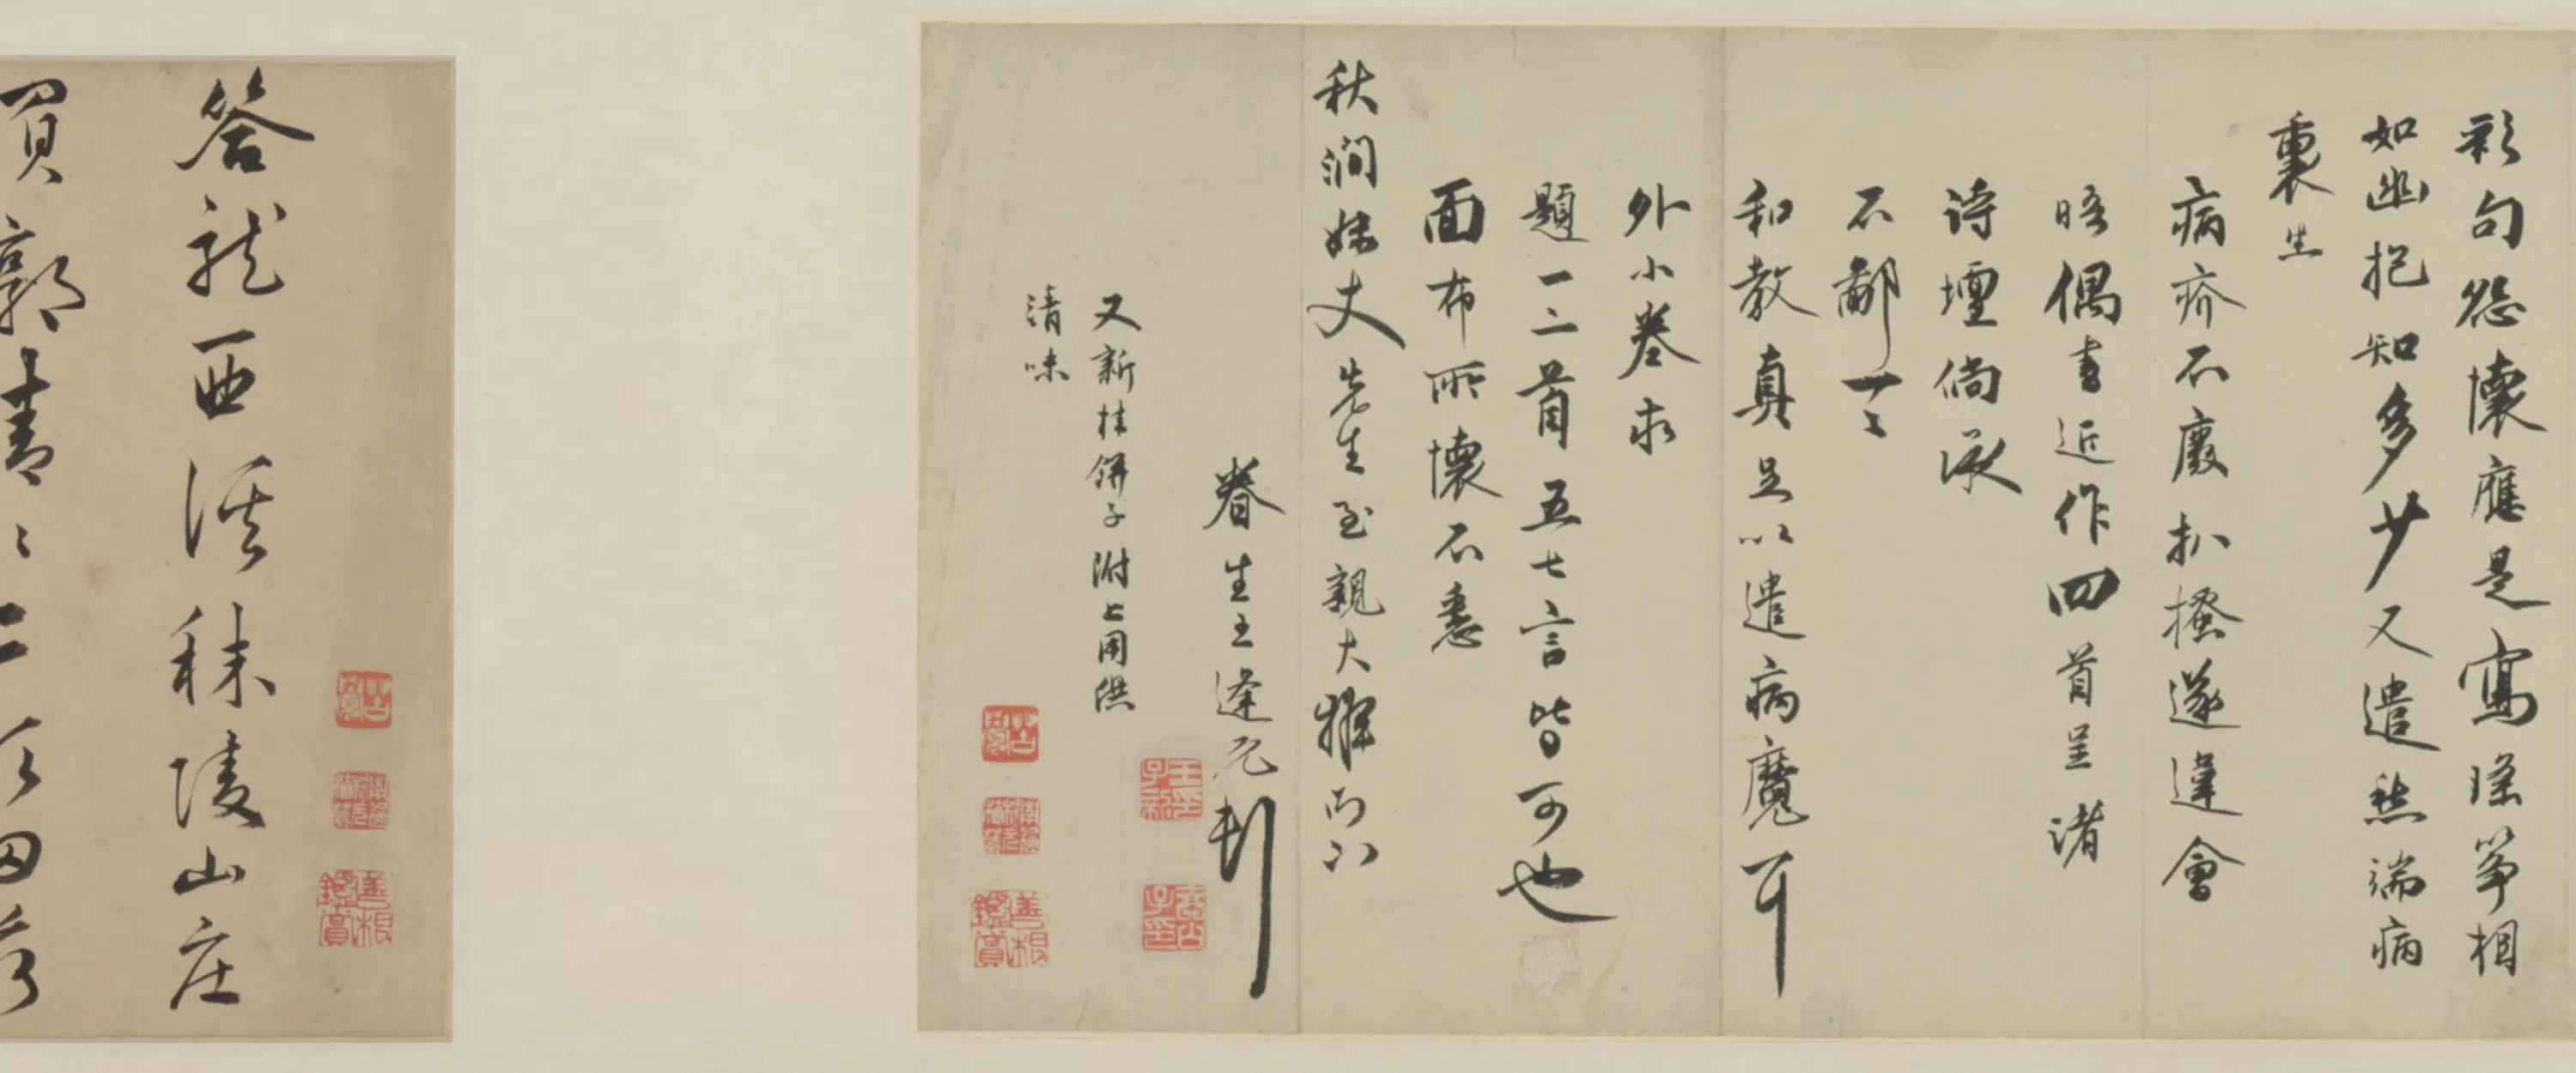 彩句怨懷應是寫瑤箏相
如幽抱知多少又遣愁端病
裏生
病疥不廢扒搔遂違會
晤偶書近作四首呈諸
詩壇倘承
不鄙一一
和教真足以遣病魔耳
外小卷求
題一二首五七言皆可也
面布所懷不悉
秋澗姝丈先生至親大雅而下
眷生王逢元刊
又新桂餅子附上用供
清味
答龍西溪秣陵山莊
買郭青〻二